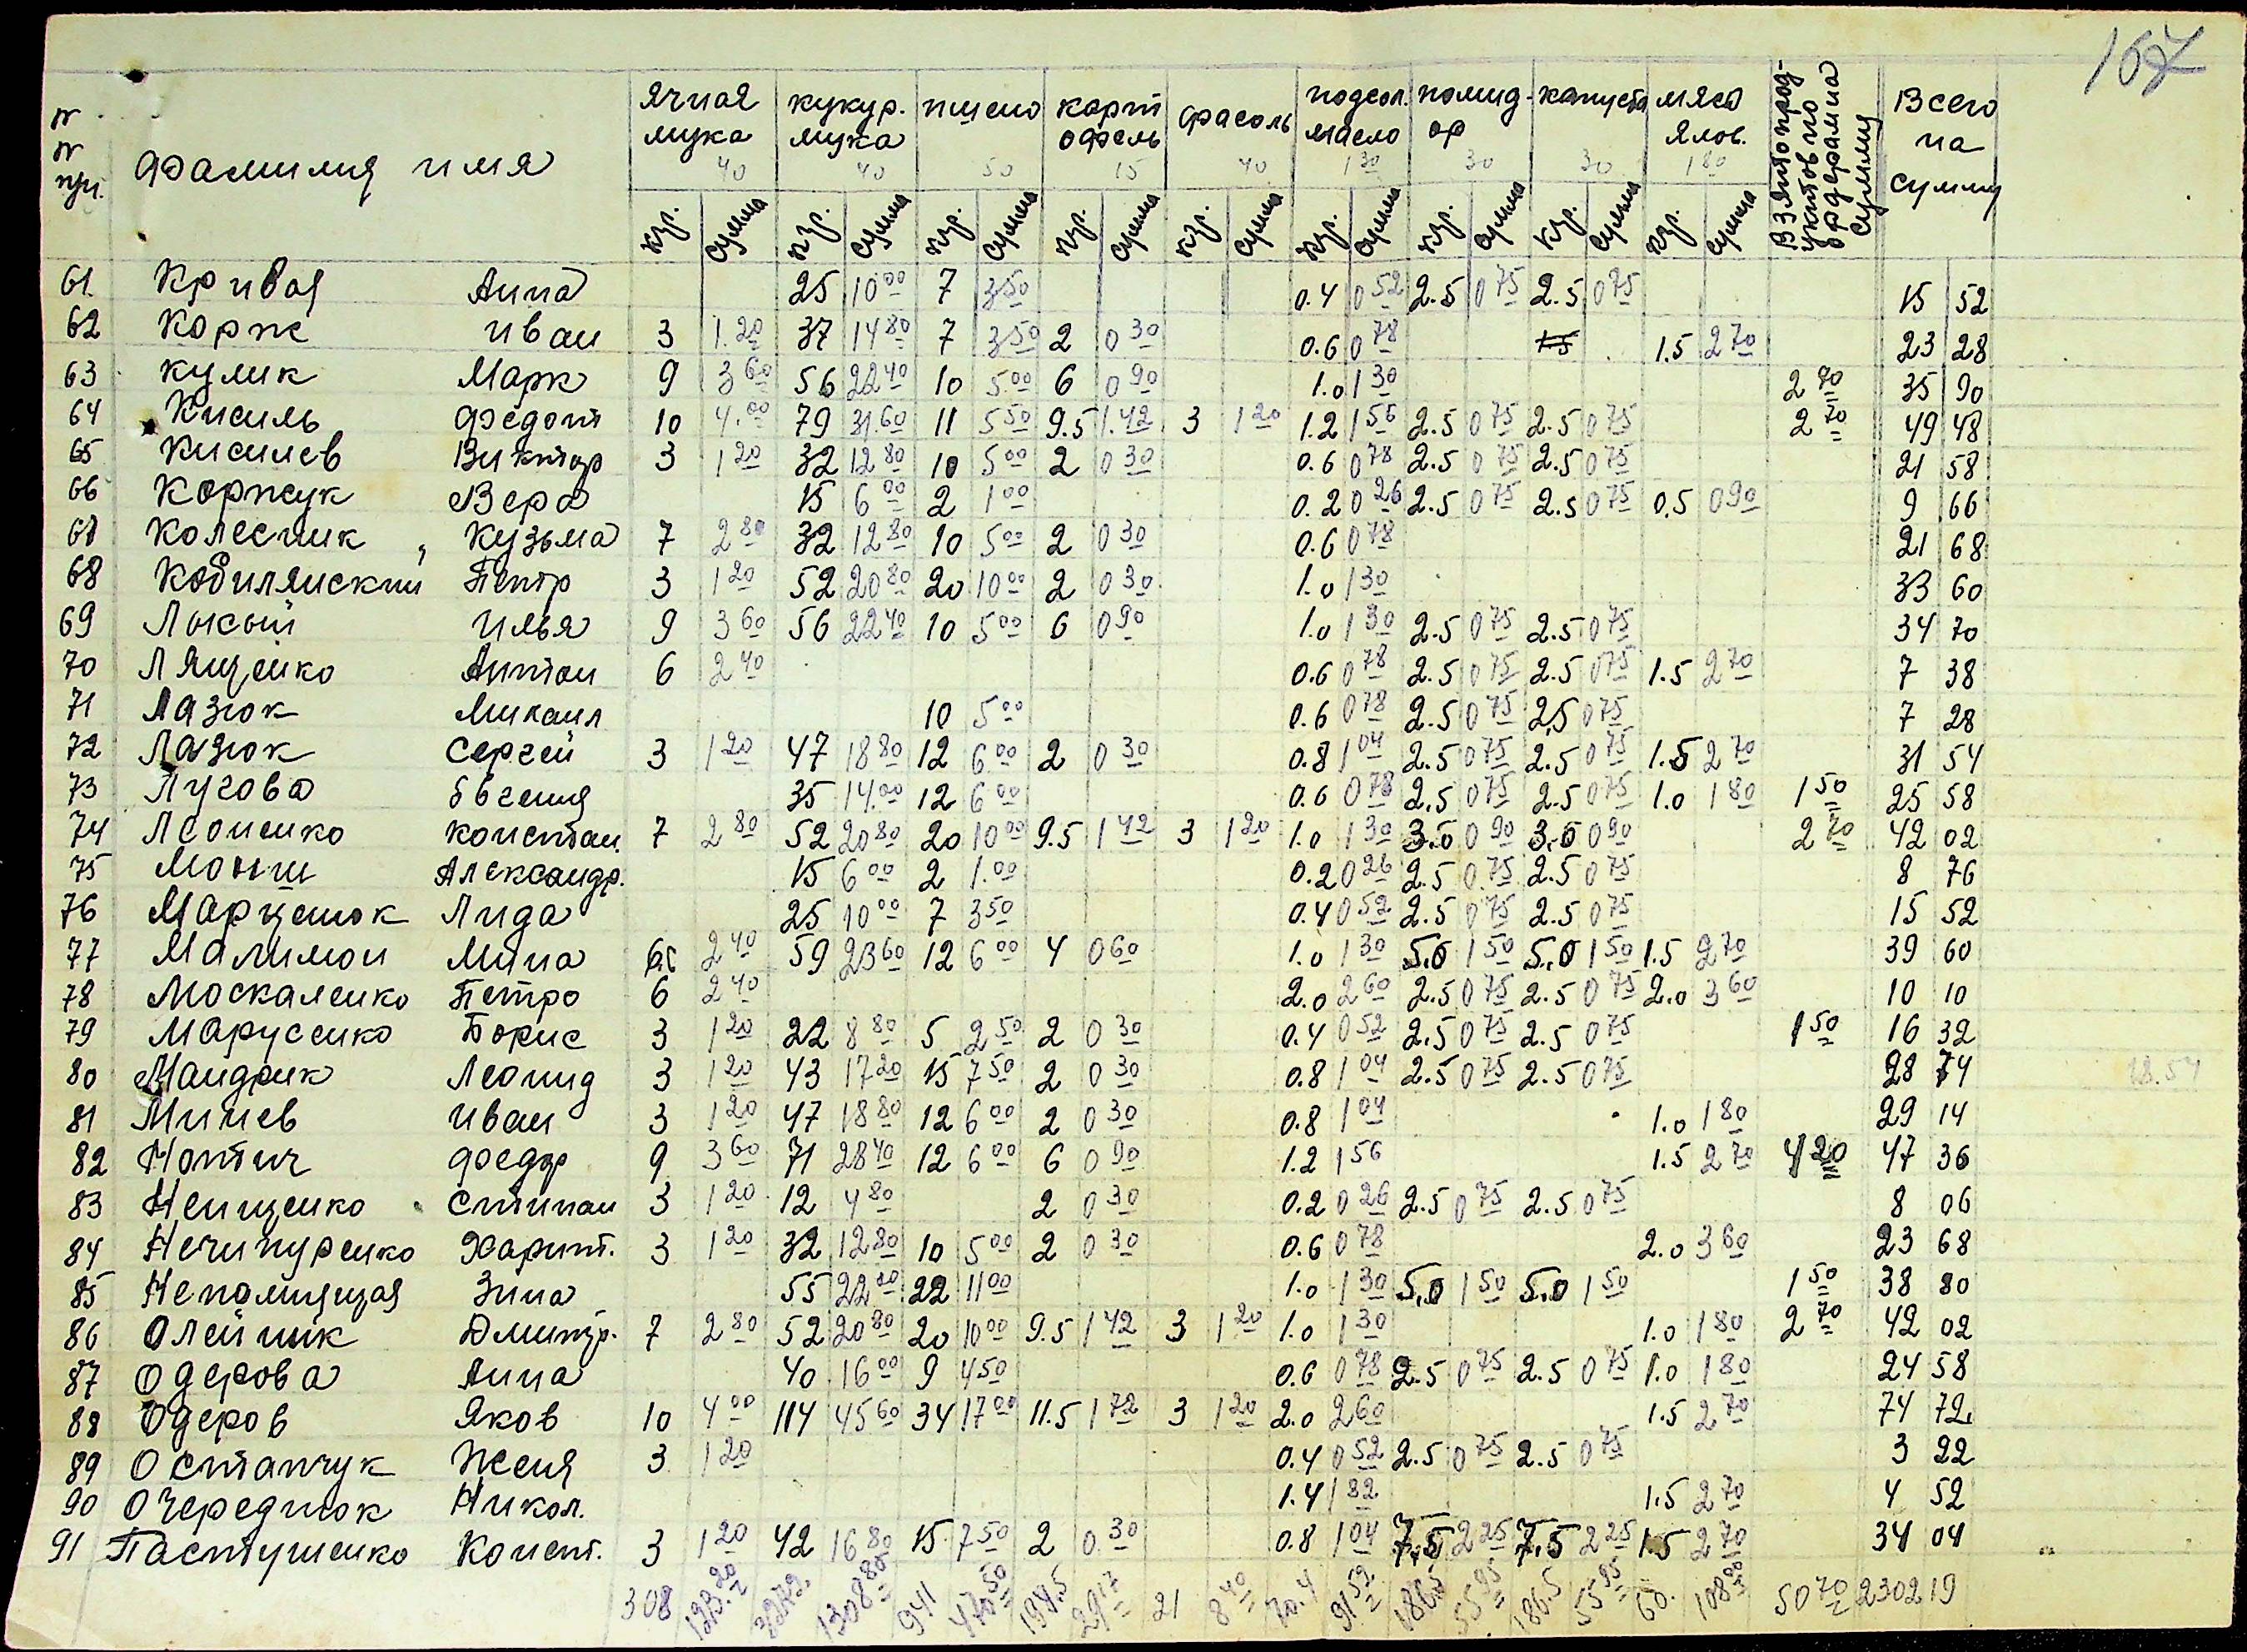 167
№ № пп. Фамилия имя ячная мука 40 кукур. мука 40 пшено 50 картофель 15 фасоль 40 подсол. масло 1 30 помидор 30 капуста 30 мясо ялов. 1 80 Взято продуктов по ордерам на сумму Всего на сумму
кгр. сумма кгр. сумма кгр. сумма кгр. сумма кгр. сумма кгр. сумма кгр. сумма кгр. сумма кгр. сумма
61. Кривая Анна 25 10 00 7 3 50 0.4 0 52 2.5 0 75 2.5 0 75 15 52
62 Корж Иван 3 1.20 37 14 80 7 3 50 2 0 30 0.6 0 78 1.5 2 70 23 28
63 Кулик Марк 9 3 60 56 22 40 10 5 00 6 0 90 1.0 1 30 2 70 35 90
64 Кисиль Федот 10 4.00 79 31.60 11 5 50 9.5 1.42 3 1 20 1.2 1 56 2.5 0 75 2.5 0 75 2 70 49 48
65 Кисилев Виктор 3 1 20 32 12 80 10 5 00 2 0 30 0.6 0 78 2.5 0 75 2.5 0 75 21 58
66 Коржук Вера 15 6 00 2 1 00 0.2 0 26 2.5 0 75 2.5 0 75 0.5 0 90 9 66
67 Колесник Кузьма 7 2 80 32 12 80 10 5 00 2 0 30 0.6 0 78 21 68
68 Кобилянский Петр 3 1 20 52 20 80 20 10 00 2 0 30 1.0 1 30 33 60
69 Лысый Илья 9 3 60 56 22 40 10 5 00 6 0 90 1.0 1 30 2.5 0 75 2.5 0 75 34 70
70 Лященко Антон 6 2 40 0.6 0 78 2.5 0 75 2.5 0 75 1.5 2 70 7 38
71 Лазюк Михаил 10 5 00 0.6 0 78 2.5 0 75 2,5 0 75 7 28
72 Лазюк Сергей 3 1 20 47 18 80 12 6 00 2 0 30 0.8 1 04 2.5 0 75 2.5 0 75 1.5 2 70 31 54
73 Лугова Евгения 35 14.00 12 6 00 0.6 0 78 2.5 0 75 2.5 0 75 1.0 1 80 1 50 25 58
74 Леоненко Констан. 7 2 80 52 20 80 20 10 00 9.5 1 42 3 1 20 1.0 1 30 3.0 0 90 3.0 0 90 2 70 42 02
75 Александр. 15 6 00 2 1.00 0.2 0 26 2.5 0.75 2.5 0 75 8 76
76 Марценюк Лида 25 10 00 7 3 50 0.4 0 52 2.5 0 75 2.5 0 75 15 52
77 Малимон Мина 2 40 59 23 60 12 6 00 4 0 60 1.0 1 30 5.0 1 50 5.0 1 50 1.5 2 70 39 60
78 Москаленко Петро 6 2 40 2.0 2 60 2.5 0 75 2.5 0 75 2.0 3 60 10 10
79 Марусенко Борис 3 1 20 22 8 80 5 2 50 2 0 30 0.4 0 52 2.5 0 75 2.5 0 75 1 50 16 32
80 Мандрик Леонид 3 1 20 43 17 20 15 7 50 2 0 30 0.8 1 04 2.5 0 75 2.5 0 75 28 74
81 Минев Иван 3 1 20 47 18 80 12 6 00 2 0 30 0.8 1 04 1.0 1 80 29 14
82 Нотич Федор 9 3 60 71 28 40 12 6 00 6 0 90 1.2 1 56 1.5 2 70 4 20 47 36
83 Ненщенко Стипан 3 1 20 12 4 80 2 0 30 0.2 0 26 2.5 0 75 2.5 0 75 8 06
84 Нечипуренко Харит. 3 1 20 32 12 80 10 5 00 2 0 30 0.6 0 78 2.0 3 60 23 68
85 Непомнящая Зина 55 22 00 22 11 00 1.0 1 30 5,0 1 50 5,0 1 50 1 50 38 80
86 Олейник Дмитр. 7 2 80 52 20 80 20 10 00 9.5 1 42 3 1 20 1.0 1 30 1.0 1 80 2 70 42 02
87 Одерова Анна 40 16 00 9 4 50 0.6 0 78 2.5 0 75 2.5 0 75 1.0 1 80 24 58
88 Одеров Яков 10 4 00 114 45 60 34 17 00 11.5 1 72 3 1 20 2.0 2 60 1.5 2 70 74 72
89 Остапчук Женя 3 1 20 0.4 0 52 2.5 0 75 2.5 0 75 3 22
90 Очереднюк Никол. 1.4 1 82 1.5 2 70 4 52
91 Пастушенко Конст. 3 1 20 42 16 80 15 7 50 2 0.30 0.8 1 04 7,5 2 25 7,5 2 25 1.5 2 70 34 04
308 123.20 3272. 1308 80 941 470 50 194.5 29 17 21 8 40 70.4 91 52 186.5 55 95 186.5 55 95 60. 108 00 50 70 2302 19